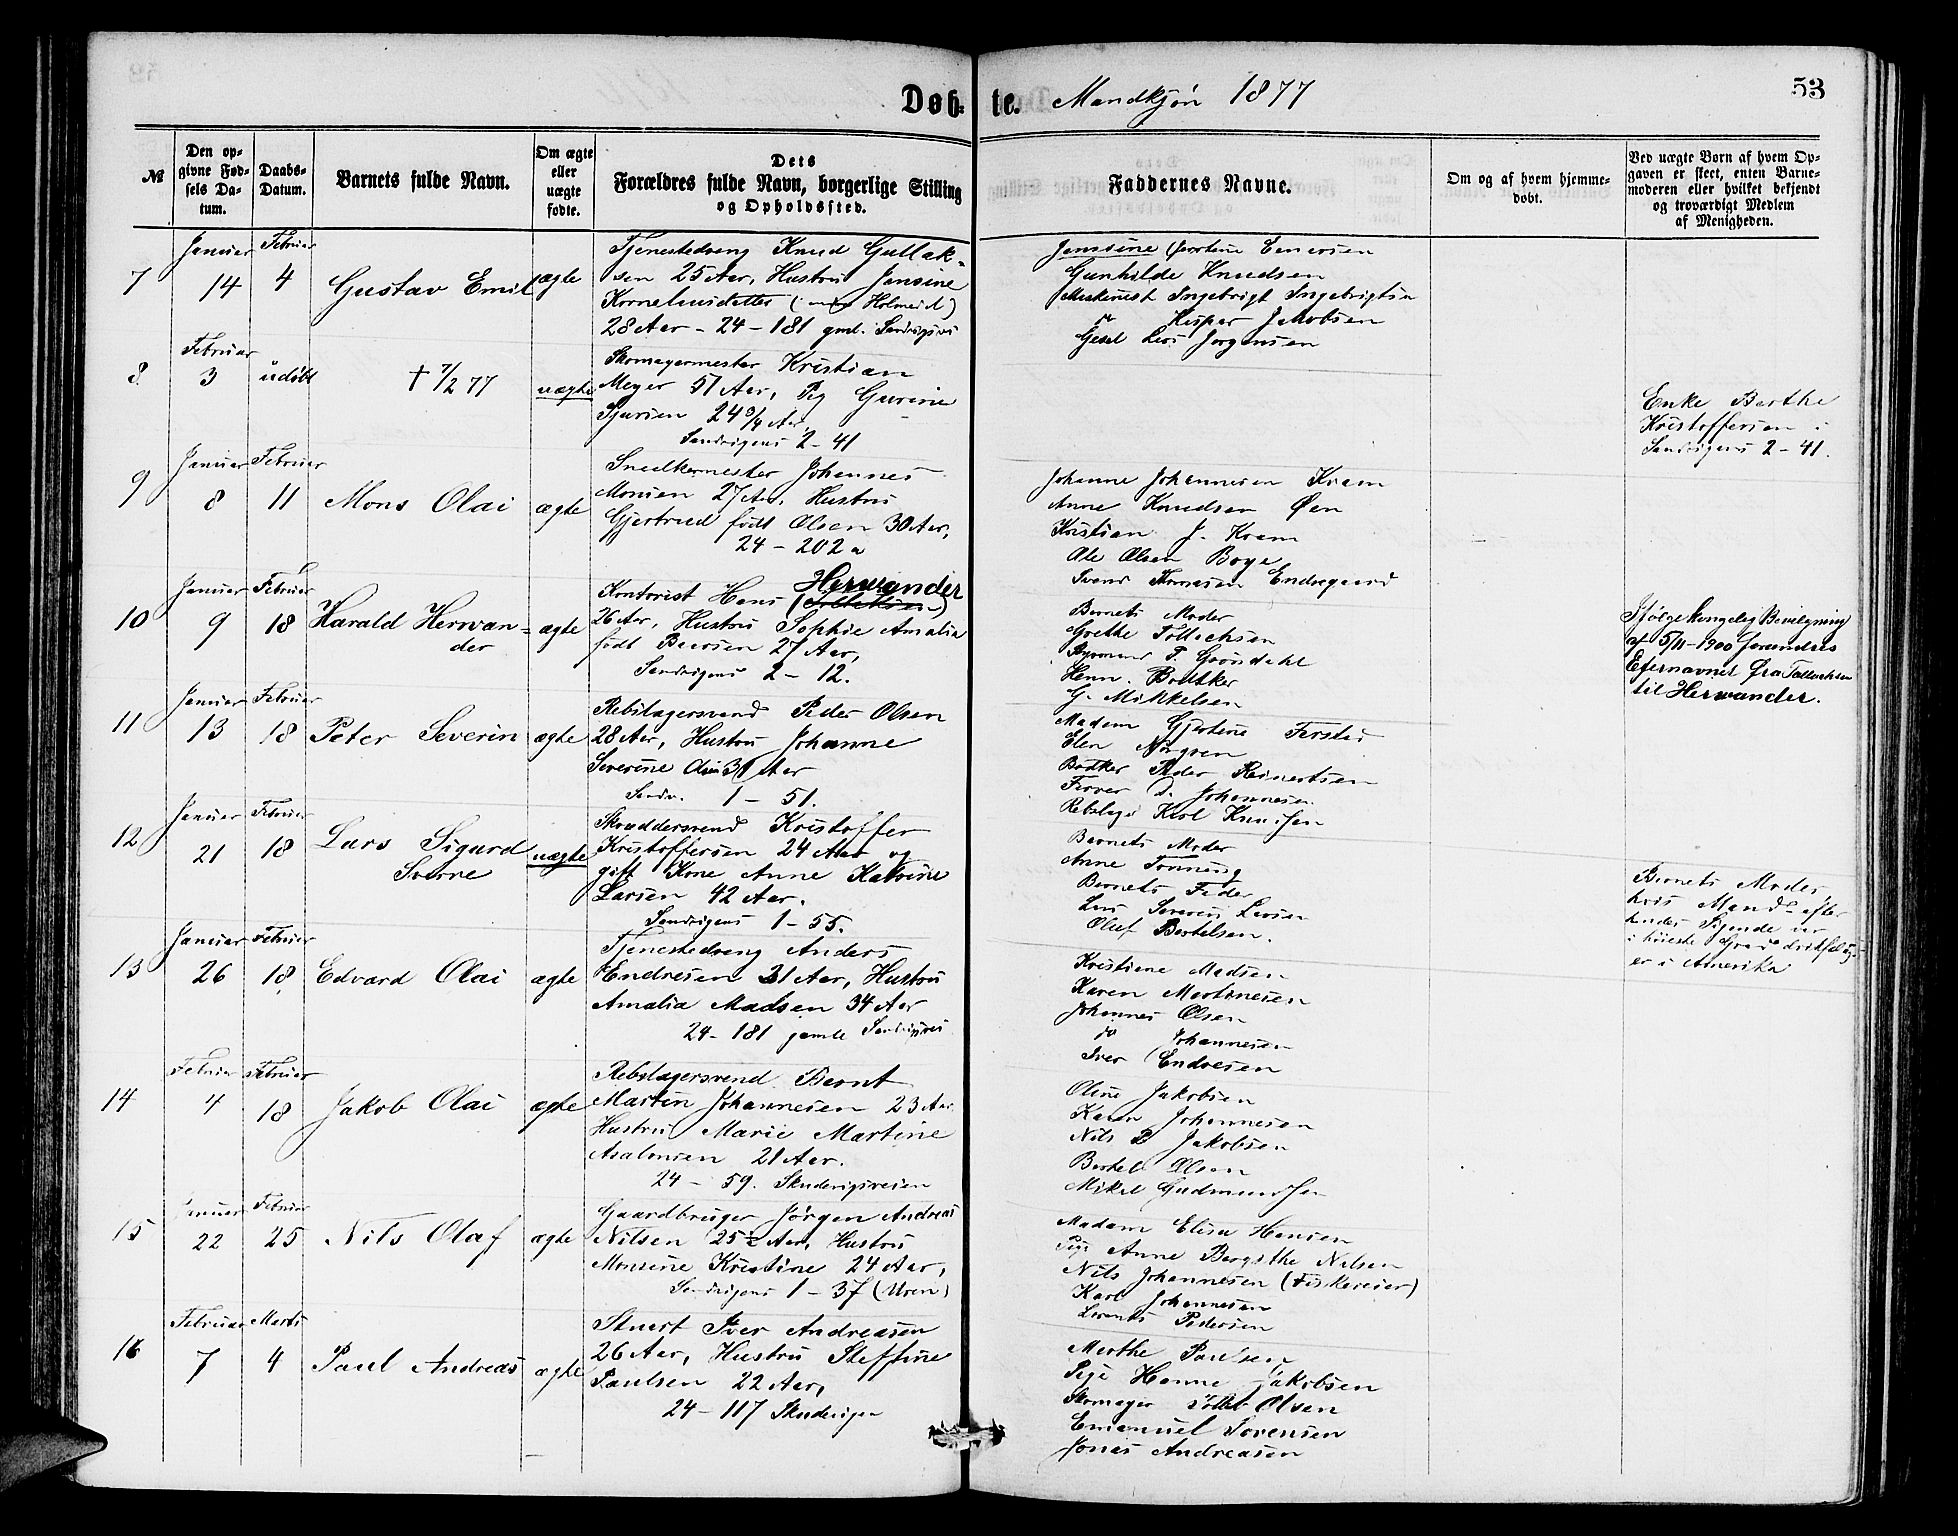 Døb- te. Mandkjøn 1877
53
№
Den op-
givne Fød-
sels Da-
tum.
Daabs-
Datum.
Barnets fulde Navn.
Om ægte
eller
uægte
fødte.
Dets
Forældres fulde Navn, borgerlige Stilling
og Opholdssted.
Faddernes Navne.
Om og af hvem hjemme-
døbt.
Ved uægte Børn af hvem Op-
gaven er skeet, enten Barne-
moderen eller hvilket bekjendt
og troværdigt Medlem
af Menigheden.
7
Januar
14
Februar
4
Gustav Emil
ægte
Tjenestedreng Knud Gullak-
sen 25 Aar, Hustru Jansine
Kornelius­datter ( Holmeid)
28 Aar - 24 - 181 gml. Sandvigsvei
Jansine Einersen
Gunhilde Knudsen
Ingebrigt Ingebrigtsen
Kasper Jakobsen
Lars Jørgensen
8
Februar
3
udøbt
† 7/2 77
uægte
Skomagermester Kristian
Meyer 51 Aar, Pig Gurine
Sjursen 24 3/4 Aar
Sandvigens 2 - 41
Enke Berthe
Kristoffersen i
Sandvigens 2 - 41.
9
Januar
8
Februar
11
Mons Olai
ægte
Snedkermester Johannes
Monsen 27 Aar, Hustru
Gjertrud født Olsen 30 Aar,
24 - 202 a
Johanne Johannesen Kram
Anne Knudsen Øen
Kristian J. Kram
Ole Olsen Boge
Svend Endregaard
10
Januar
9
Februar
18
Harald Herwan-
der
ægte
Kontorist Hans Herwander
26 Aar, Hustru Sophie Amalia
født 27 Aar,
Sandvigens 2 - 12.
Barnets Moder
Grethe Tollechsen
P. Grøndahl
Henn. Bødtker
G. Mikkelsen
Ifølge kongelig Bevilgning
af 5/11-1900 forandres
Efternavnet fra Tollechsen
til Herwander.
11
Januar
13
Februar
18
Peter Severin
ægte
Rebslagersvend Peder Olsen
28 Aar, Hustru Johanne
Severine 31 Aar
Sandv. 1 - 51.
Madam Gjertine
Elen Norgren
Bødker Peder Reinertsen
Farver D. Johannesen
Rebslager Karl Knudsen
12
Januar
21
Februar
18
Lars Sigurd
Sverre
uægte
Skræddersvend Kristoffer
Kristoffersen 24 Aar og
gift Kone Anne Katrine
Larsen 42 Aar.
Sandvigens 1 - 55.
Barnets Moder
Anne Tonning
Barnets Fader
Lars Severin Larsen
Oluf Bertelsen.
Barnets Moder
hvis Mand efter
hendes Sigende var
i høieste Grad drikfældig
er i Amerika
13
Januar
26
Februar
18
Edvard Olai
ægte
Tjenestedreng Anders
Endresen 31 Aar, Hustru
Amalia Madsen 34 Aar
24 - 181 gamle Sandvigsvei
Kristiane Madsen
Karen Martinesen
Johannes Olsen
do Johannesen
Iver Endresen
14
Februar
4
Februar
18
Jakob Olai
ægte
Rebslagersvend Bernt
Martin Johannesen 23 Aar
Hustru Marie Martine
Asalonsen 21 Aar.
24 - 59. Skudevigsveien
Oline Jakobsen
Karen Johannesen
Nils P Jakobsen
Bertel Olsen
Mikel Gudmundsen
15
Januar
22
Februar
25
Nils Olaf
ægte
Gaardbruger Jørgen Andreas
Nilsen 25 Aar, Hustru
Monsine Kristine 24 Aar,
Sandvigens 1 - 37 (Uren)
Madam Elisa Hansen
Pige Anne Bergithe Nilsen
Nils Johannesen (Fiskereier)
Karl Johannesen
Lorents Pedersen
16
Februar
7
Marts
4
Paul Andreas
ægte
Stuert Iver Andreasen
26 Aar, Hustru Steffine
Paulsen 22 Aar,
24 - 117 Skudevigen
Marthe Paulsen
Pige Hanne Jakobsen
Skomager Olsen
Emanuel Sørensen
Jonas Andreasen